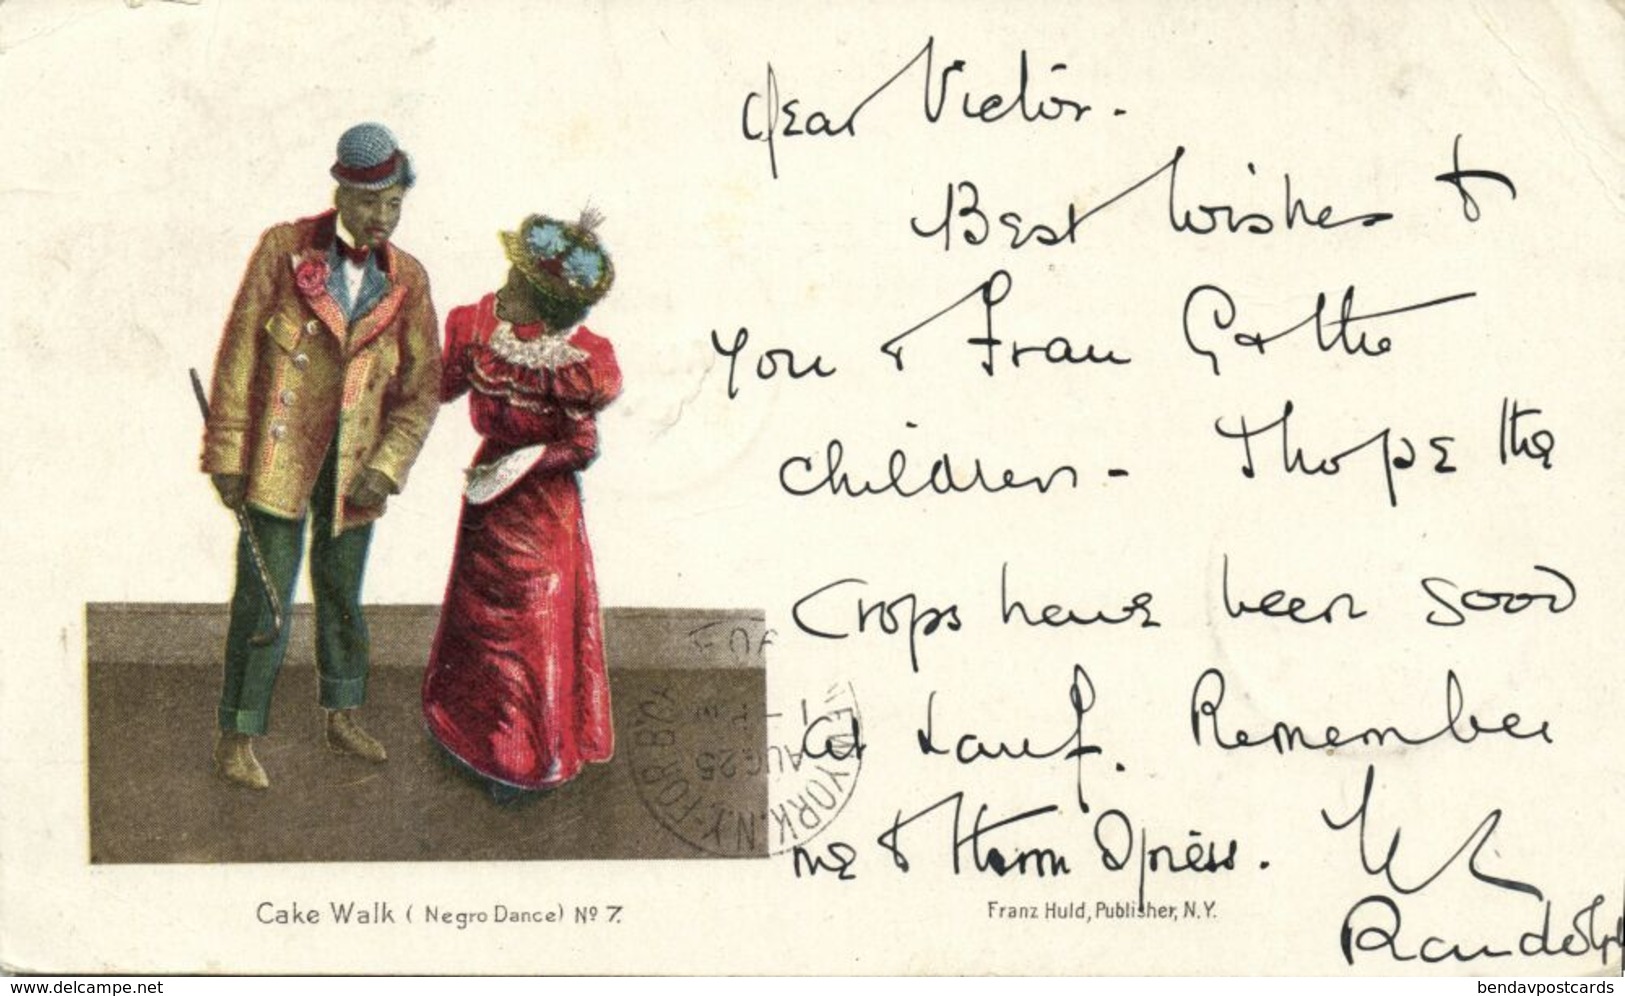 Dear Victor.
Best Wishes to
you & Frau G & the
children - I hope the
Crops have been good
at Lauf. Remember
me to Herrn
Randolph
NEW YORK, N.Y.
AUG 25
Cake Walk ( Negro Dance) Nº 7.
Franz Huld, Publisher, N.Y.
www.delcampe.net
bendavpostcards